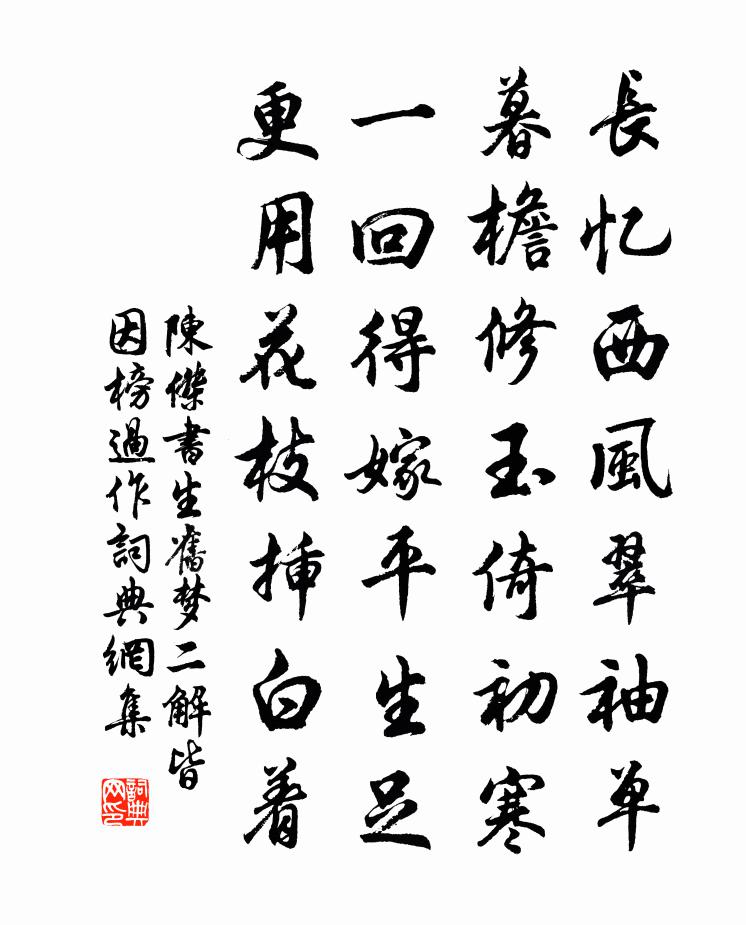 長忆西風翠袖单
暮檐修玉倚初寒
一回得嫁平生足
更用花枝挿白着
陳傑書生舊梦二解皆
因榜過作詞典網集
詞典
网印